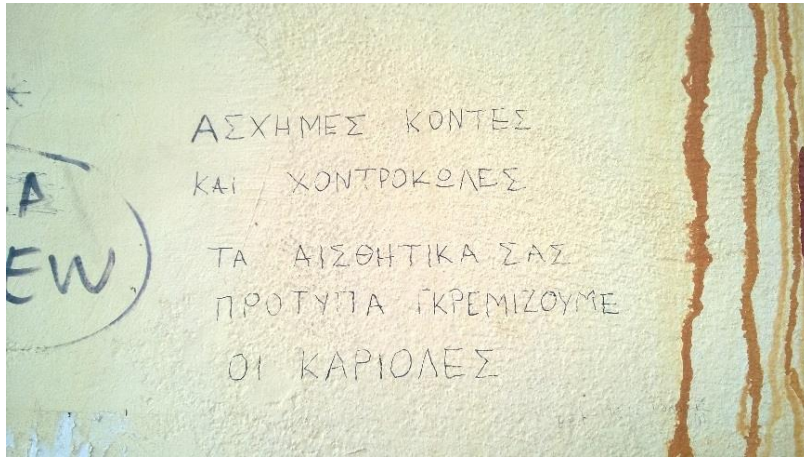 ΑΣΧΗΜΕΣ ΚΟΝΤΕΣ
ΚΑΙ ΧΟΝΤΡΟΚΩΛΕΣ
ΤΑ ΑΙΣΘΗΤΙΚΑ ΣΑΣ
ΠΡΟΤΥΠΑ ΓΚΡΕΜΙΖΟΥΜΕ
ΟΙ ΚΑΡΙΟΛΕΣ
EW